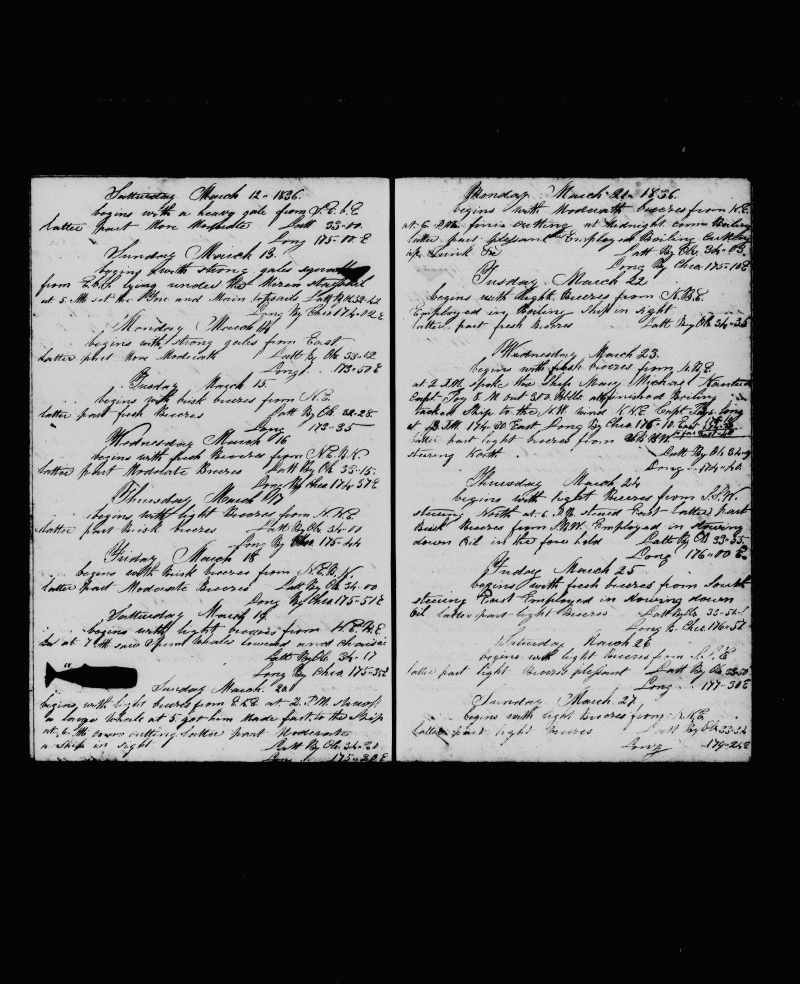 Satturday March 12 - 1836
begins with a heavy gale from S.E.b.E
latter part More Moderate Latt 33-00
Long 175-00 E
Sunday March 13
begins with strong gales squally
from E.b.S lying under the Mizen staysail
at 5 set the Fore and Main topsails Latt By
Long By Chro 174-02 E
Monday March 14
begins with strong gales from East
latter part More Moderate Latt By Ob 33-12
Long 173-50 E
Tusday March 15
begins with brisk breezes from N.E
latter part fresh Breezes Latt By Ob 32-28
Long 173-35
Wednesday March 16
begins with fresh Breezes from N.E.B.N
latter part Moderate Breezes Latt By Ob 33-15
Long By Chro 174-57 E
Thursday March 17
begins with light Breezes from N.N.E
latter part Brisk breezes Latt By Ob 34-00
Long By Chro 175-44
Friday March 18
begins with Brisk breezes from N.E.B.N.
latter part Moderate Breezes Latt By Ob 34-00
Long By Chro 175-51 E
Satturday March 19
begins with light breezes from N.E.B.E
at 7 saw Sperm Whales lowered and chased
Latt By Ob 34-17
Long By Chro 175-35 E
Sunday March 20
begins with light breezes from at 2 P.M. struck
a large Whale at 5 got him Made fast to the Ship
at 6 coms cutting latter part Moderate
a Ship in sight Latt By Ob 34-20
Long 175-20 E
Monday March 21 - 1836
begins with Moderate breezes from N.E
at 6 P.M. finis cutting at Midnight coms Boiling
latter part plesant Employed Boiling
Latt By Ob 34-03
Long By Chro 175-10 E
Tusday March 22
begins with light Breezes from N.B.E.
Employed in Boiling Ship in sight
latter part fresh Breezes Latt By Ob 34-35
Wednesday March 23
begins with fresh breezes from N.B.E
at 2 P.M. spoke the Ship Mary Michael Nantuck
Capt 8 M out 350 Bbls finished Boiling
tacked Ship to the N.W. wind N.N.E Capt Long
at 3 P.M. 174-30 East Long By Chro 176-10 East
latter part light breezes from
stering North Latt By Ob
Long 174-40
Thursday March 24
begins with light Breezes from S.S.W.
stering North at 6 P.M. stered East latter part
Brisk Breezes from Employed in stowing
down Oil in the fore hold Latt By Ob 33-55
Long 176-00 E
Friday March 25
begins with fresh breezes from South
stering East Employed in stowing down
Oil latter part light Breezes Latt By Ob 33-54
Long By Chro 176-57
Satturday March 26
begins with light Breezes from S.S.E
latter part light Breezes plesant Latt By Ob 33-50
Long 177-30 E
Sunday March 27
begins with light Breezes from N.N.E
latter part light Breezes Latt By Ob 33-32
Long 179-24 E